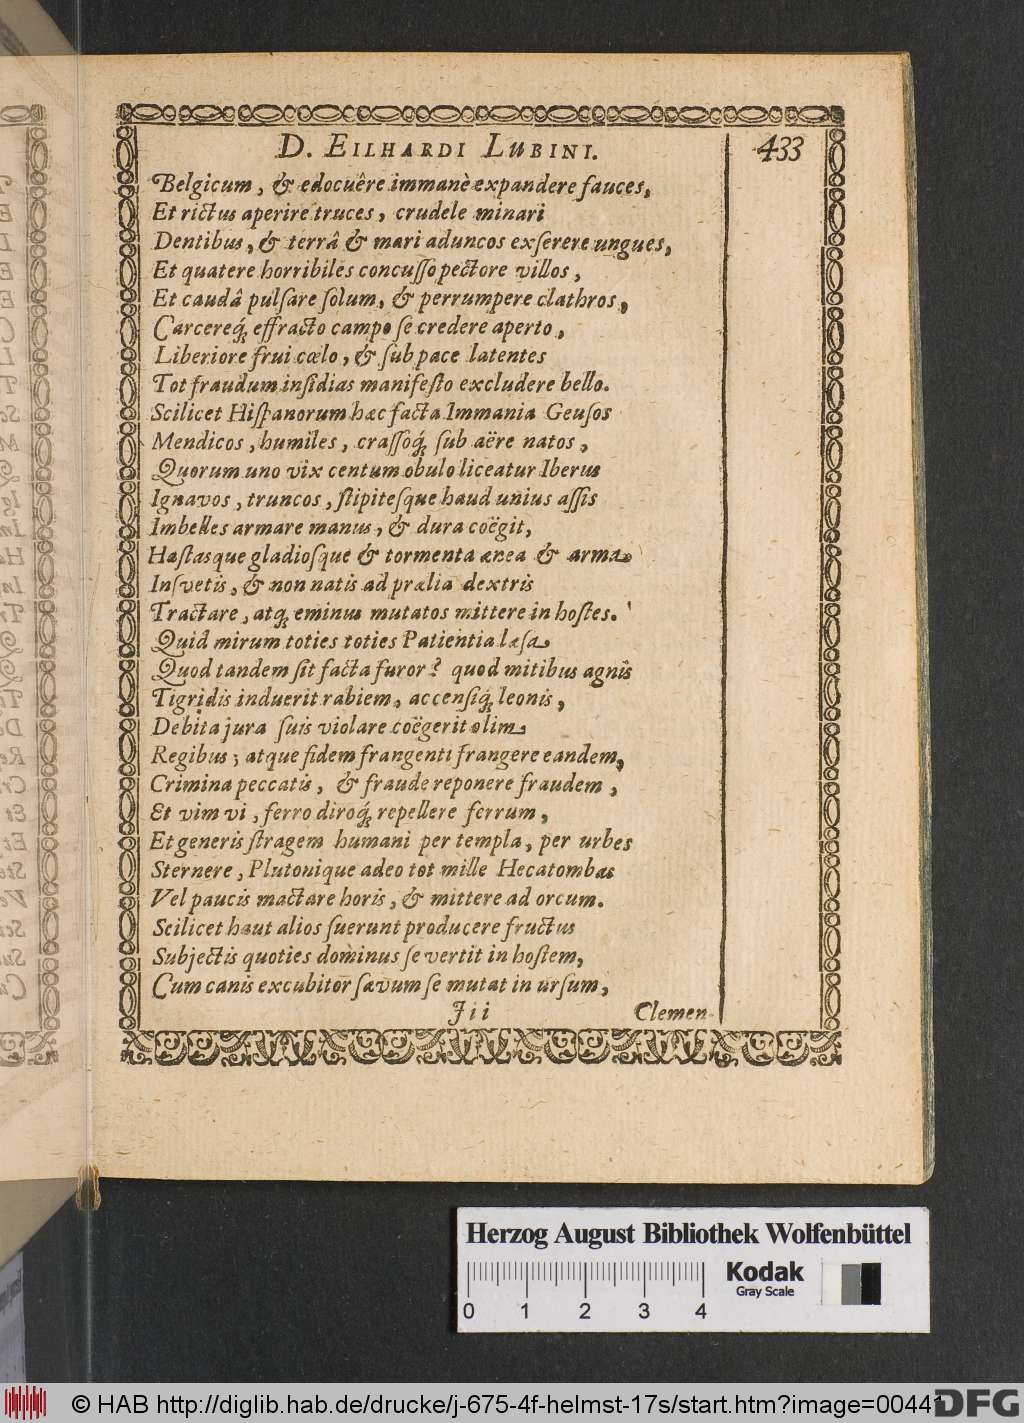 D. EILHARDI LUBINI. 433
Belgicum, & edocuêre immanè expandere fauces,
Et rictus aperire truces, crudele minari
Dentibus, & terrâ & mari aduncos exſerere ungues,
Et quatere horribiles concuſſo pectore villos,
Et caudâ pulſare ſolum, & perrumpere clathros,
Carcereq́; effracto campo ſe credere aperto,
Liberiore frui cœlo, & ſub pace latentes
Tot fraudum inſidias manifeſto excludere bello.
Scilicet Hiſpanorum hæc facta Immania Geuſos
Mendicos, humiles, craſſoq́; ſub aëre natos,
Quorum uno vix centum obulo liceatur Iberus
Ignavos, truncos, ſtipiteſque haud unius aſſis
Imbelles armare manus, & dura coëgit,
Haſtasque gladioſque & tormenta ænea & arma
Inſvetis, & non natis ad prælia dextris
Tractare, atq; eminus mutatos mittere in hoſtes.
Quid mirum toties toties Patientia læſa
Quod tandem ſit facta furor? quod mitibus agnis
Tigridis induerit rabiem, accenſiq́; leonis,
Debita jura ſuis violare coëgerit olim
Regibus; atque fidem frangenti frangere eandem,
Crimina peccatis, & fraude reponere fraudem,
Et vim vi, ferro diroq́; repellere ferrum,
Et generis ſtragem humani per templa, per urbes
Sternere, Plutonique adeo tot mille Hecatombas
Vel paucis mactare horis, & mittere ad orcum.
Scilicet haut alios ſuerunt producere fructus
Subjectis quoties dominus ſe vertit in hoſtem,
Cum canis excubitor ſævum ſe mutat in urſum,
Jii Clemen-
Herzog August Bibliothek Wolfenbüttel
Kodak
Gray Scale
0 1 2 3 4
© HAB http://diglib.hab.de/drucke/j-675-4f-helmst-17s/start.htm?image=00441
DFG